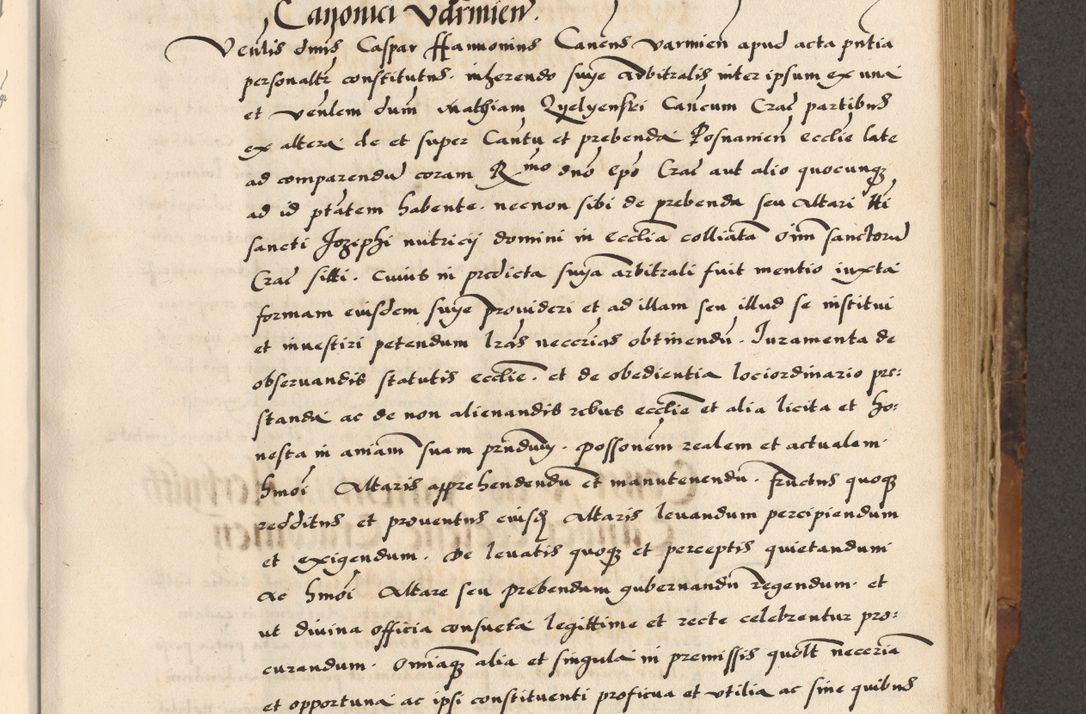 Canonici Varmien̄.
Venlis dnus Caspar Hannonius Canens varmien apud acta pntia
personaltr constitutus. inherendo suye Arbitralis inter ipsum ex una
et venlem dum Mathiam Zyelyenski Cancum Crac partibus
ex altera de et super Cantu et prebenda Posnamen ecclie late
ad comparendū coram Rmo dno epo Crac aut alio quocunq
ad id ptatem habente. necnon sibi de prebenda seu Altari tti
sancti Jozephi nutricij domini in Ecclia colliata Oim sanctorū
Crac sitti. Cuius in predicta suya arbitrali fuit mentio iuxta
formam eiusdem suye provideri et ad illam seu illud se institui
et investiri petendum lras neccrias obtinendū. Juramenta de
observandis statutis ecclie. et de obedientia loci ordinario pre:
standa ac de non alienandis rebus ecclie et alia licita et ho:
nesta in aniam suam prndum. possonem realem et actualem
hmoi Altaris apprehendendū et manutenendū. Fructus quoq
redditus et proventus eiusd Altaris levandum percipiendum
et exigendum. De levatis quoq et perceptis quietandum
Ac hmoi Altare seu prebendam gubernandū regendum et
ut divina officia consueta legittime et recte celebrentur pro:
curandum. Omiaq alia et singula in premissis quolt necceria
et opportuna ac ipsi constituenti proficua et utilia ac sine quibus